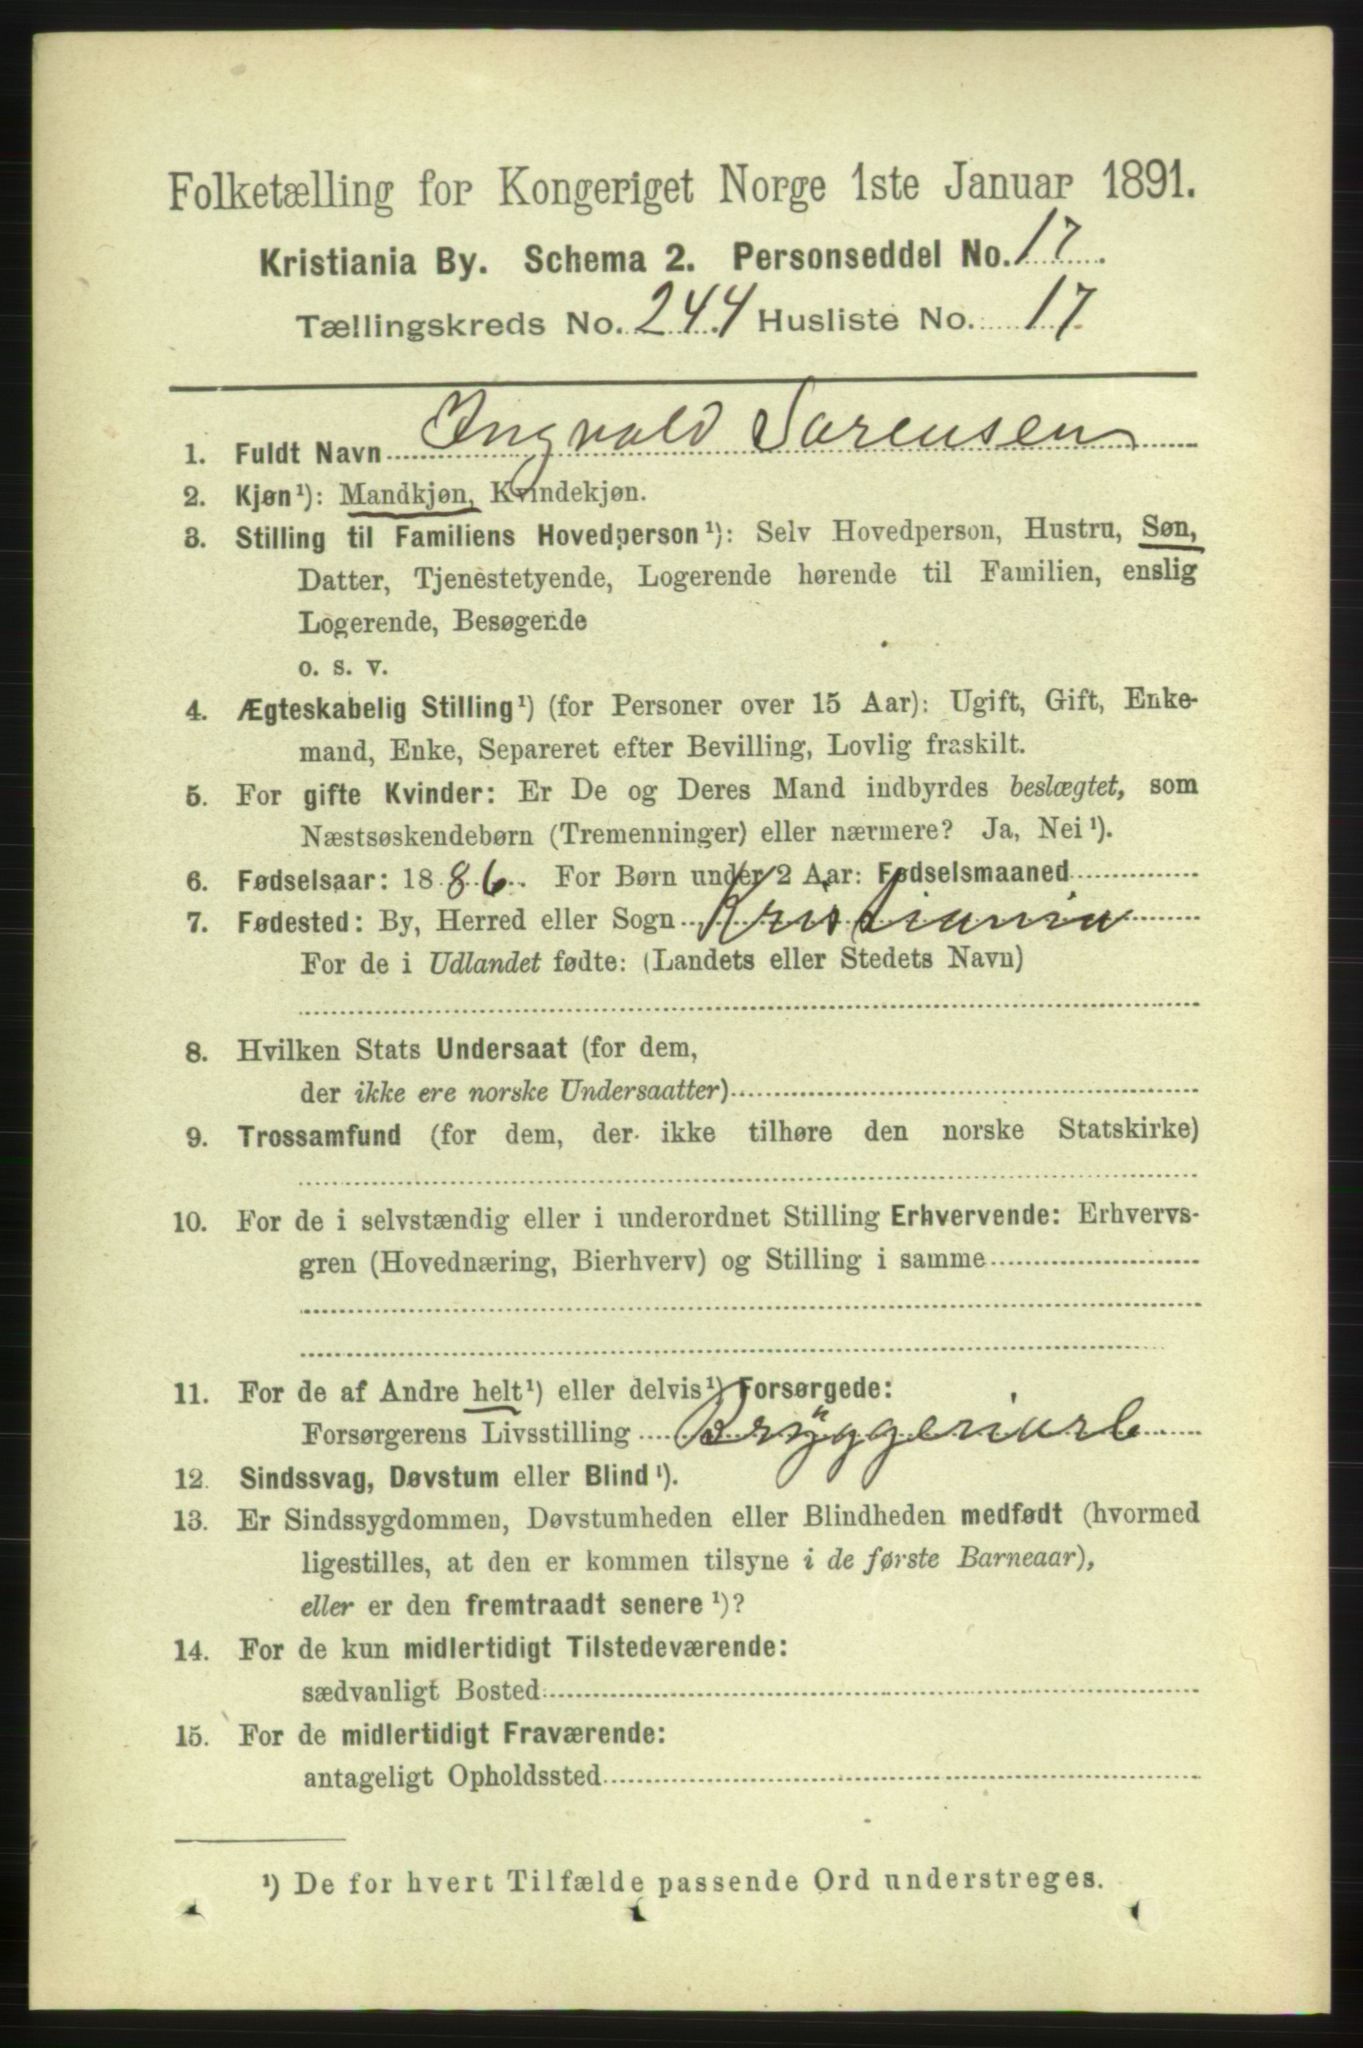 Folketælling for Kongeriget Norge 1ste Januar 1891.
Kristiania By. Schema 2. Personseddel No. 17.
Tællingskreds No. 244 Husliste No. 17
1. Fuldt Navn Ingvald Sorensen
2. Kjøn¹): Mandkjøn, Kvindekjøn.
3. Stilling til Familiens Hovedperson¹): Selv Hovedperson, Hustru, Søn,
Datter, Tjenestetyende, Logerende hørende til Familien, enslig
Logerende, Besøgende
o. s. v.
4. Ægteskabelig Stilling¹) (for Personer over 15 Aar): Ugift, Gift, Enke-
mand, Enke, Separeret efter Bevilling, Lovlig fraskilt.
5. For gifte Kvinder: Er De og Deres Mand indbyrdes beslægtet, som
Næstsøskendebørn (Tremenninger) eller nærmere? Ja, Nei¹).
6. Fødselsaar: 1886. For Børn under 2 Aar: Fødselsmaaned
7. Fødested: By, Herred eller Sogn Kristiania
For de i Udlandet fødte: (Landets eller Stedets Navn)
8. Hvilken Stats Undersaat (for dem,
der ikke ere norske Undersaatter)
9. Trossamfund (for dem, der ikke tilhøre den norske Statskirke)
10. For de i selvstændig eller i underordnet Stilling Erhvervende: Erhvervs-
gren (Hovednæring, Bierhverv) og Stilling i samme
11. For de af Andre helt¹) eller delvis¹) Forsørgede:
Forsørgerens Livsstilling Brÿggeriarb
12. Sindssvag, Døvstum eller Blind¹).
13. Er Sindssygdommen, Døvstumheden eller Blindheden medfødt (hvormed
ligestilles, at den er kommen tilsyne i de første Barneaar),
eller er den fremtraadt senere¹)?
14. For de kun midlertidigt Tilstedeværende:
sædvanligt Bosted
15. For de midlertidigt Fraværende:
antageligt Opholdssted
¹) De for hvert Tilfælde passende Ord understreges.